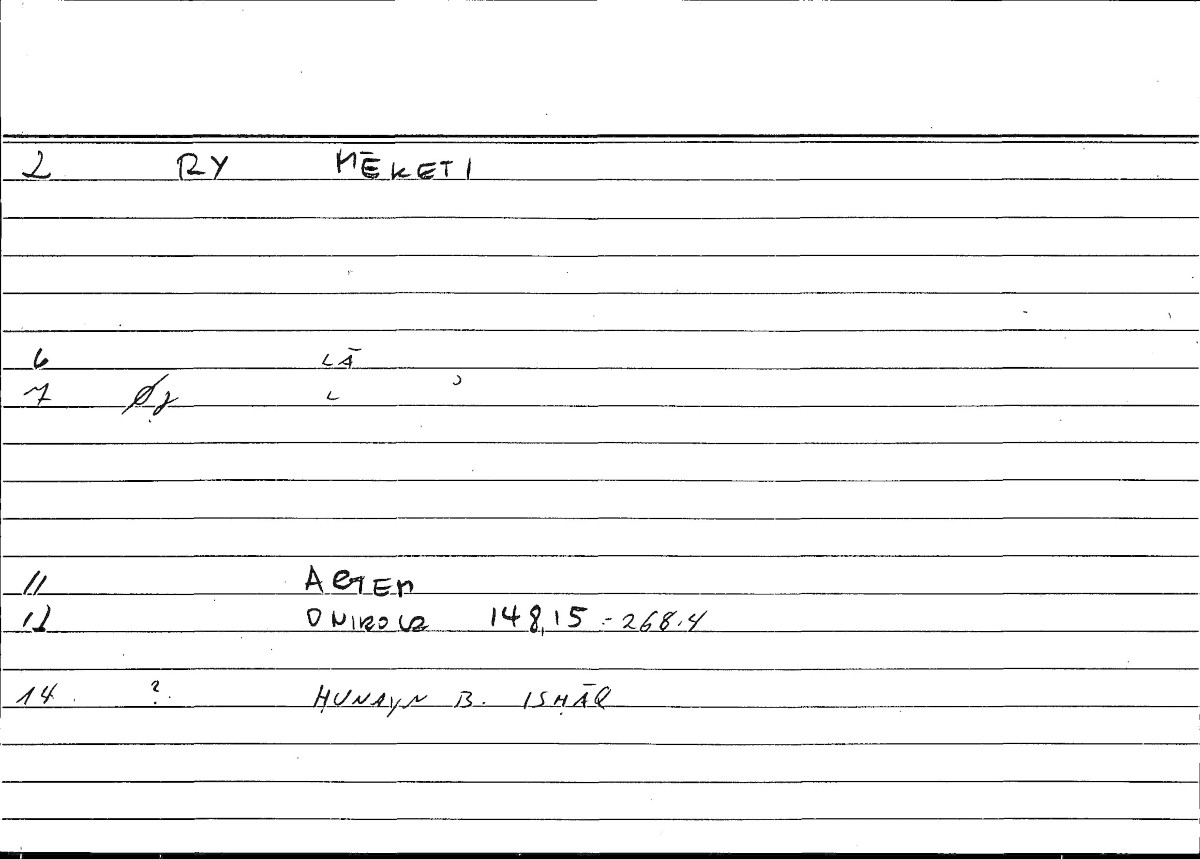 2 RY MĒKETI
6 LĀ
7 Øγ L ʾ
11 ARTEM
12 ONIROCR 148,15 - 268.4
14. ? ḤUNAYN B. ISḤĀQ